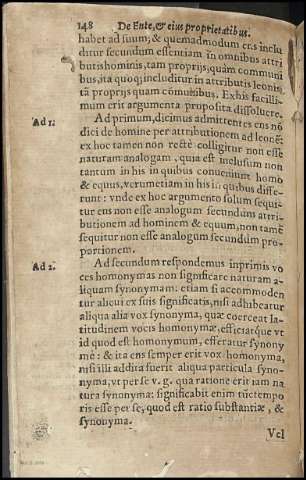 148 De Ente, & eius proprietatibus.
habet ad suum; & quemadmodum ens inclu
ditur secundum essentiam in omnibus attri
butis hominis, tam proprijs, quàm communi
bus, ita quoq; includitur in attributis leonis,
tã proprijs quàm cõmunibus. Ex his facilli-
mum erit argumenta proposita dissoluere.
Ad 1. Ad primum, dicimus admittentes ens nõ
dici de homine per attributionem ad leonẽ:
ex hoc tamen non rectè colligitur non esse
naturam analogam, quia est inclusum non
tantum in his in quibus conueniunt homo
& equus, verumetiam in his in quibus diffe-
runt: vnde ex hoc argumento solùm sequi-
tur ens non esse analogum secundum attri
butionem ad hominem & equum, non tamẽ
sequitur non esse analogum secundum pro-
portionem.
Ad 2. Ad secundum respondemus inprimis vo
ces homonymas non significare naturam a-
liquam synonymam: etiam si accommoden
tur alicui ex suis significatis, nisi adhibeatur
aliqua alia vox synonyma, quæ coerceat la-
titudinem vocis homonymæ, efficiatque vt
id quod est homonymum, efferatur synony
mè: & ita ens semper erit vox homonyma,
nisi illi addita fuerit aliqua particula syno-
nyma, vt per se v. g. qua ratione erit iam na
tura synonyma: significabit enim tũc tempo
ris esse per se, quod est ratio substantiæ, &
synonyma.
Vel